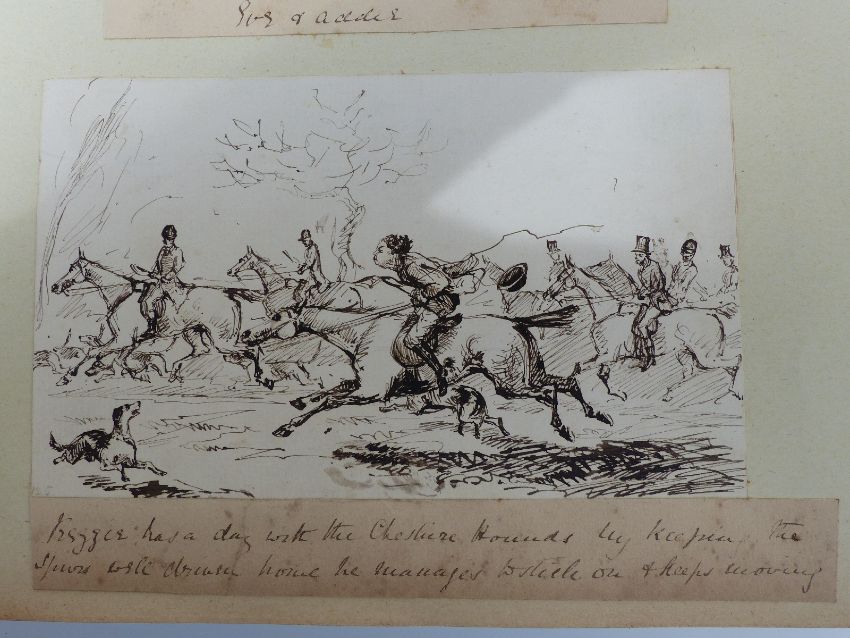 & adder
has a day with the Cheshire Hounds by keeping the
Spurs well driven home he manages to stick on & keeps moving